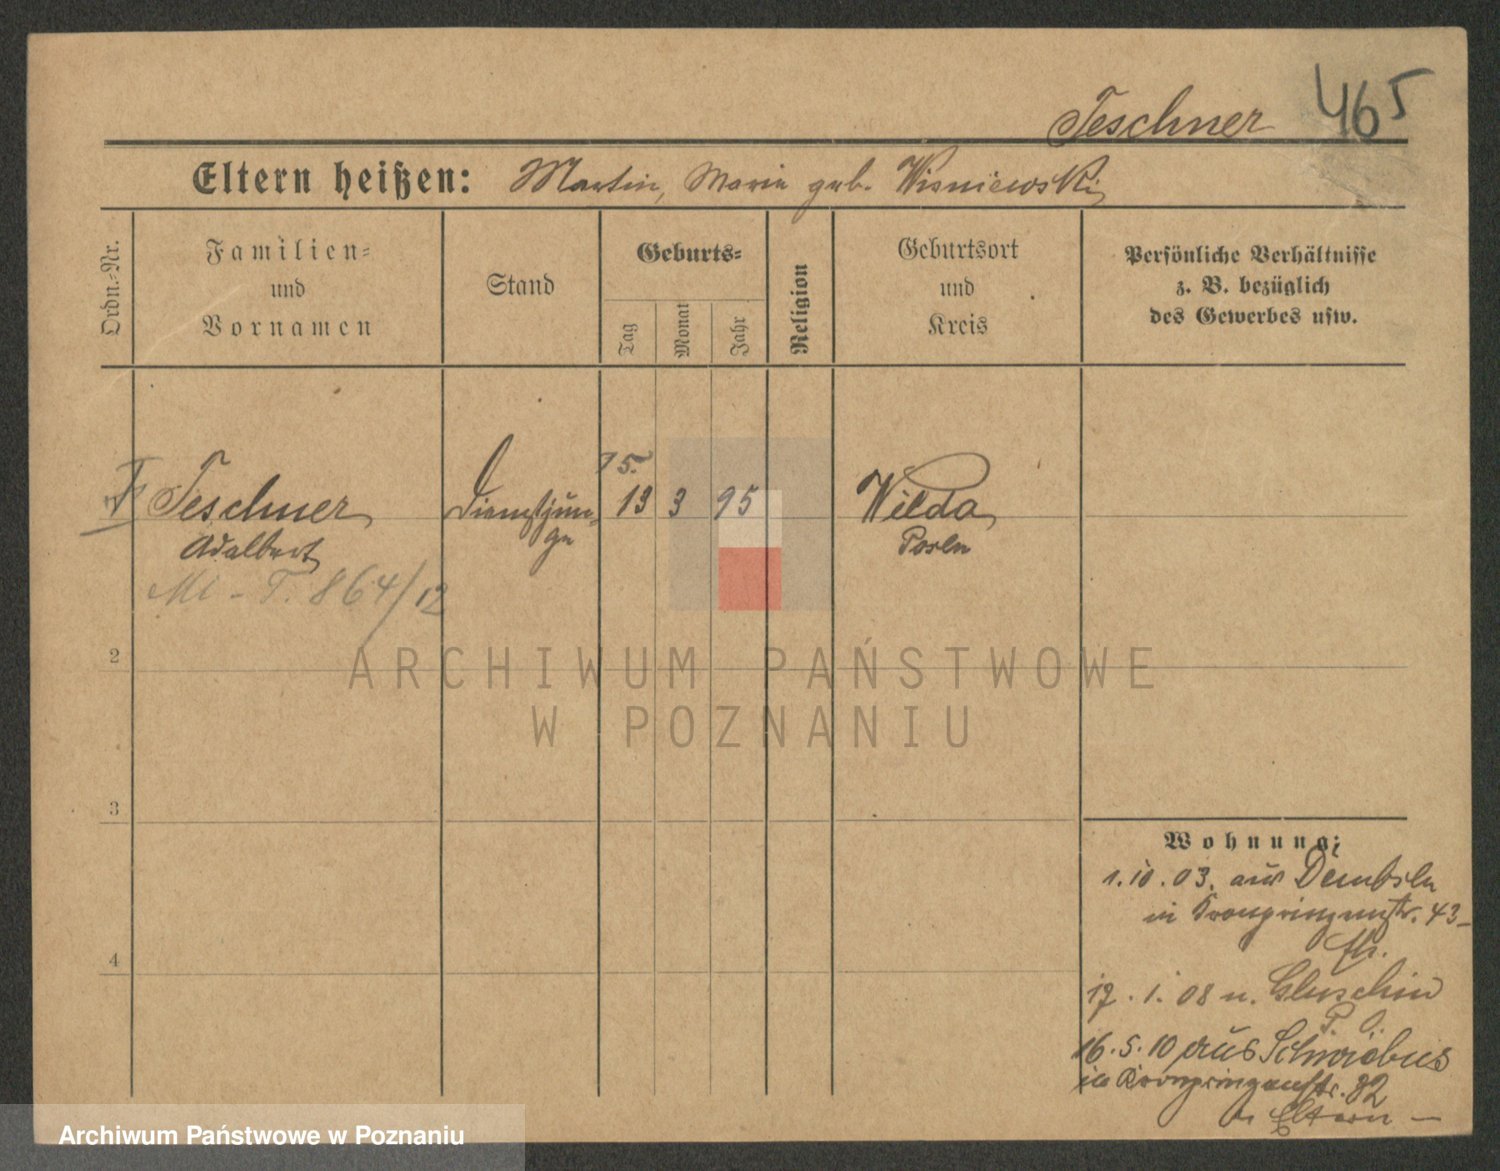 465
Teschner
Eltern heißen: Martin, Maria geb. Wisniewski
Ordn.-Nr.
Familien-
und
Vornamen
Stand
Geburts-
Tag
Monat
Jahr
Religion
Geburtsort
und
Kreis
Persönliche Verhältnisse
z. B. bezüglich
des Gewerbes usw.
15.
Teschner Dienstjun- 13 3 95 Wilda
Adalbert ge Posen
Ml - T. 864/12
2
ARCHIWUM PAŃSTWOWE
W POZNANIU
3
Wohnung:
1.10.03. aus Dembsen
in Kronprinzenstr. 43
4
17.1.08 n. Gluschin
P. O.
16.5.10 aus Schwiebus
in Kronprinzenstr. 82
Eltern
Archiwum Państwowe w Poznaniu